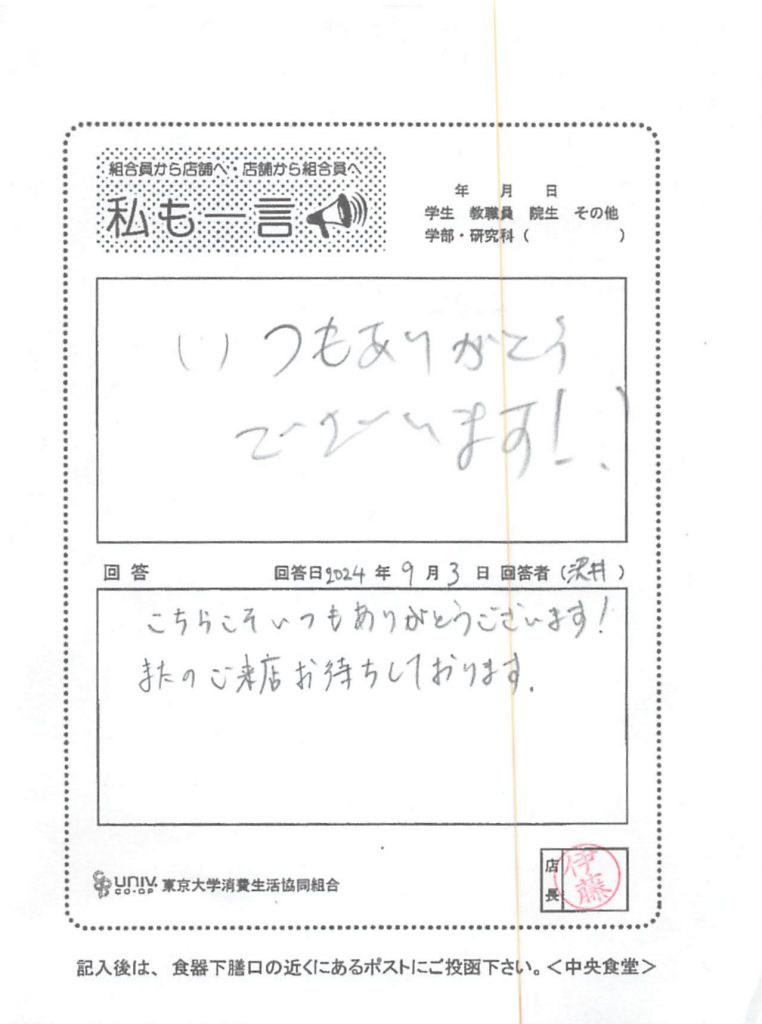 組合員から店舗へ・店舗から組合員へ
私も一言
年 月 日
学生 教職員 院生 その他
学部・研究科（ ）
いつもありがとう
ございます!!
回答 回答日2024年9月3日 回答者（沢井）
こちらこそいつもありがとうございます!
またのご来店お待ちしております.
UNIV. CO-OP 東京大学消費生活協同組合
店長 伊藤
記入後は、食器下膳口の近くにあるポストにご投函下さい。＜中央食堂＞